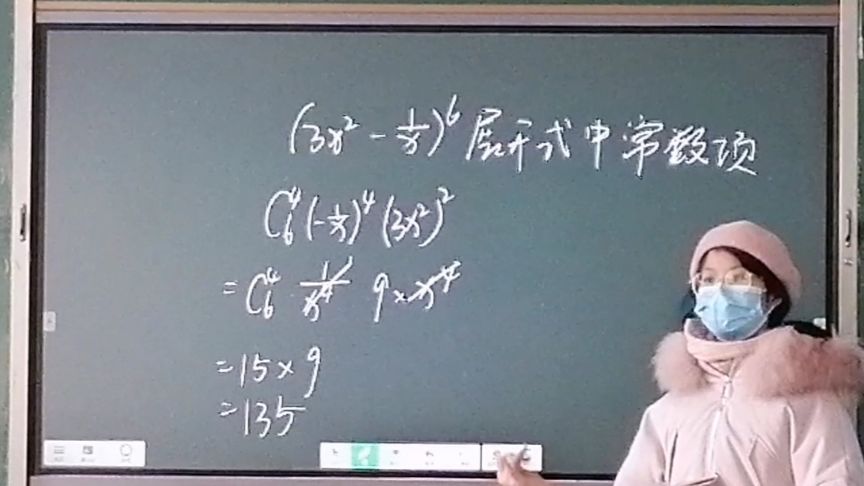 (3x² - 1/x)⁶ 展开式中常数项
C₆⁴(-1/x)⁴(3x²)²
= C₆⁴ 1/x⁴ 9 × x⁴
= 15 × 9
= 135